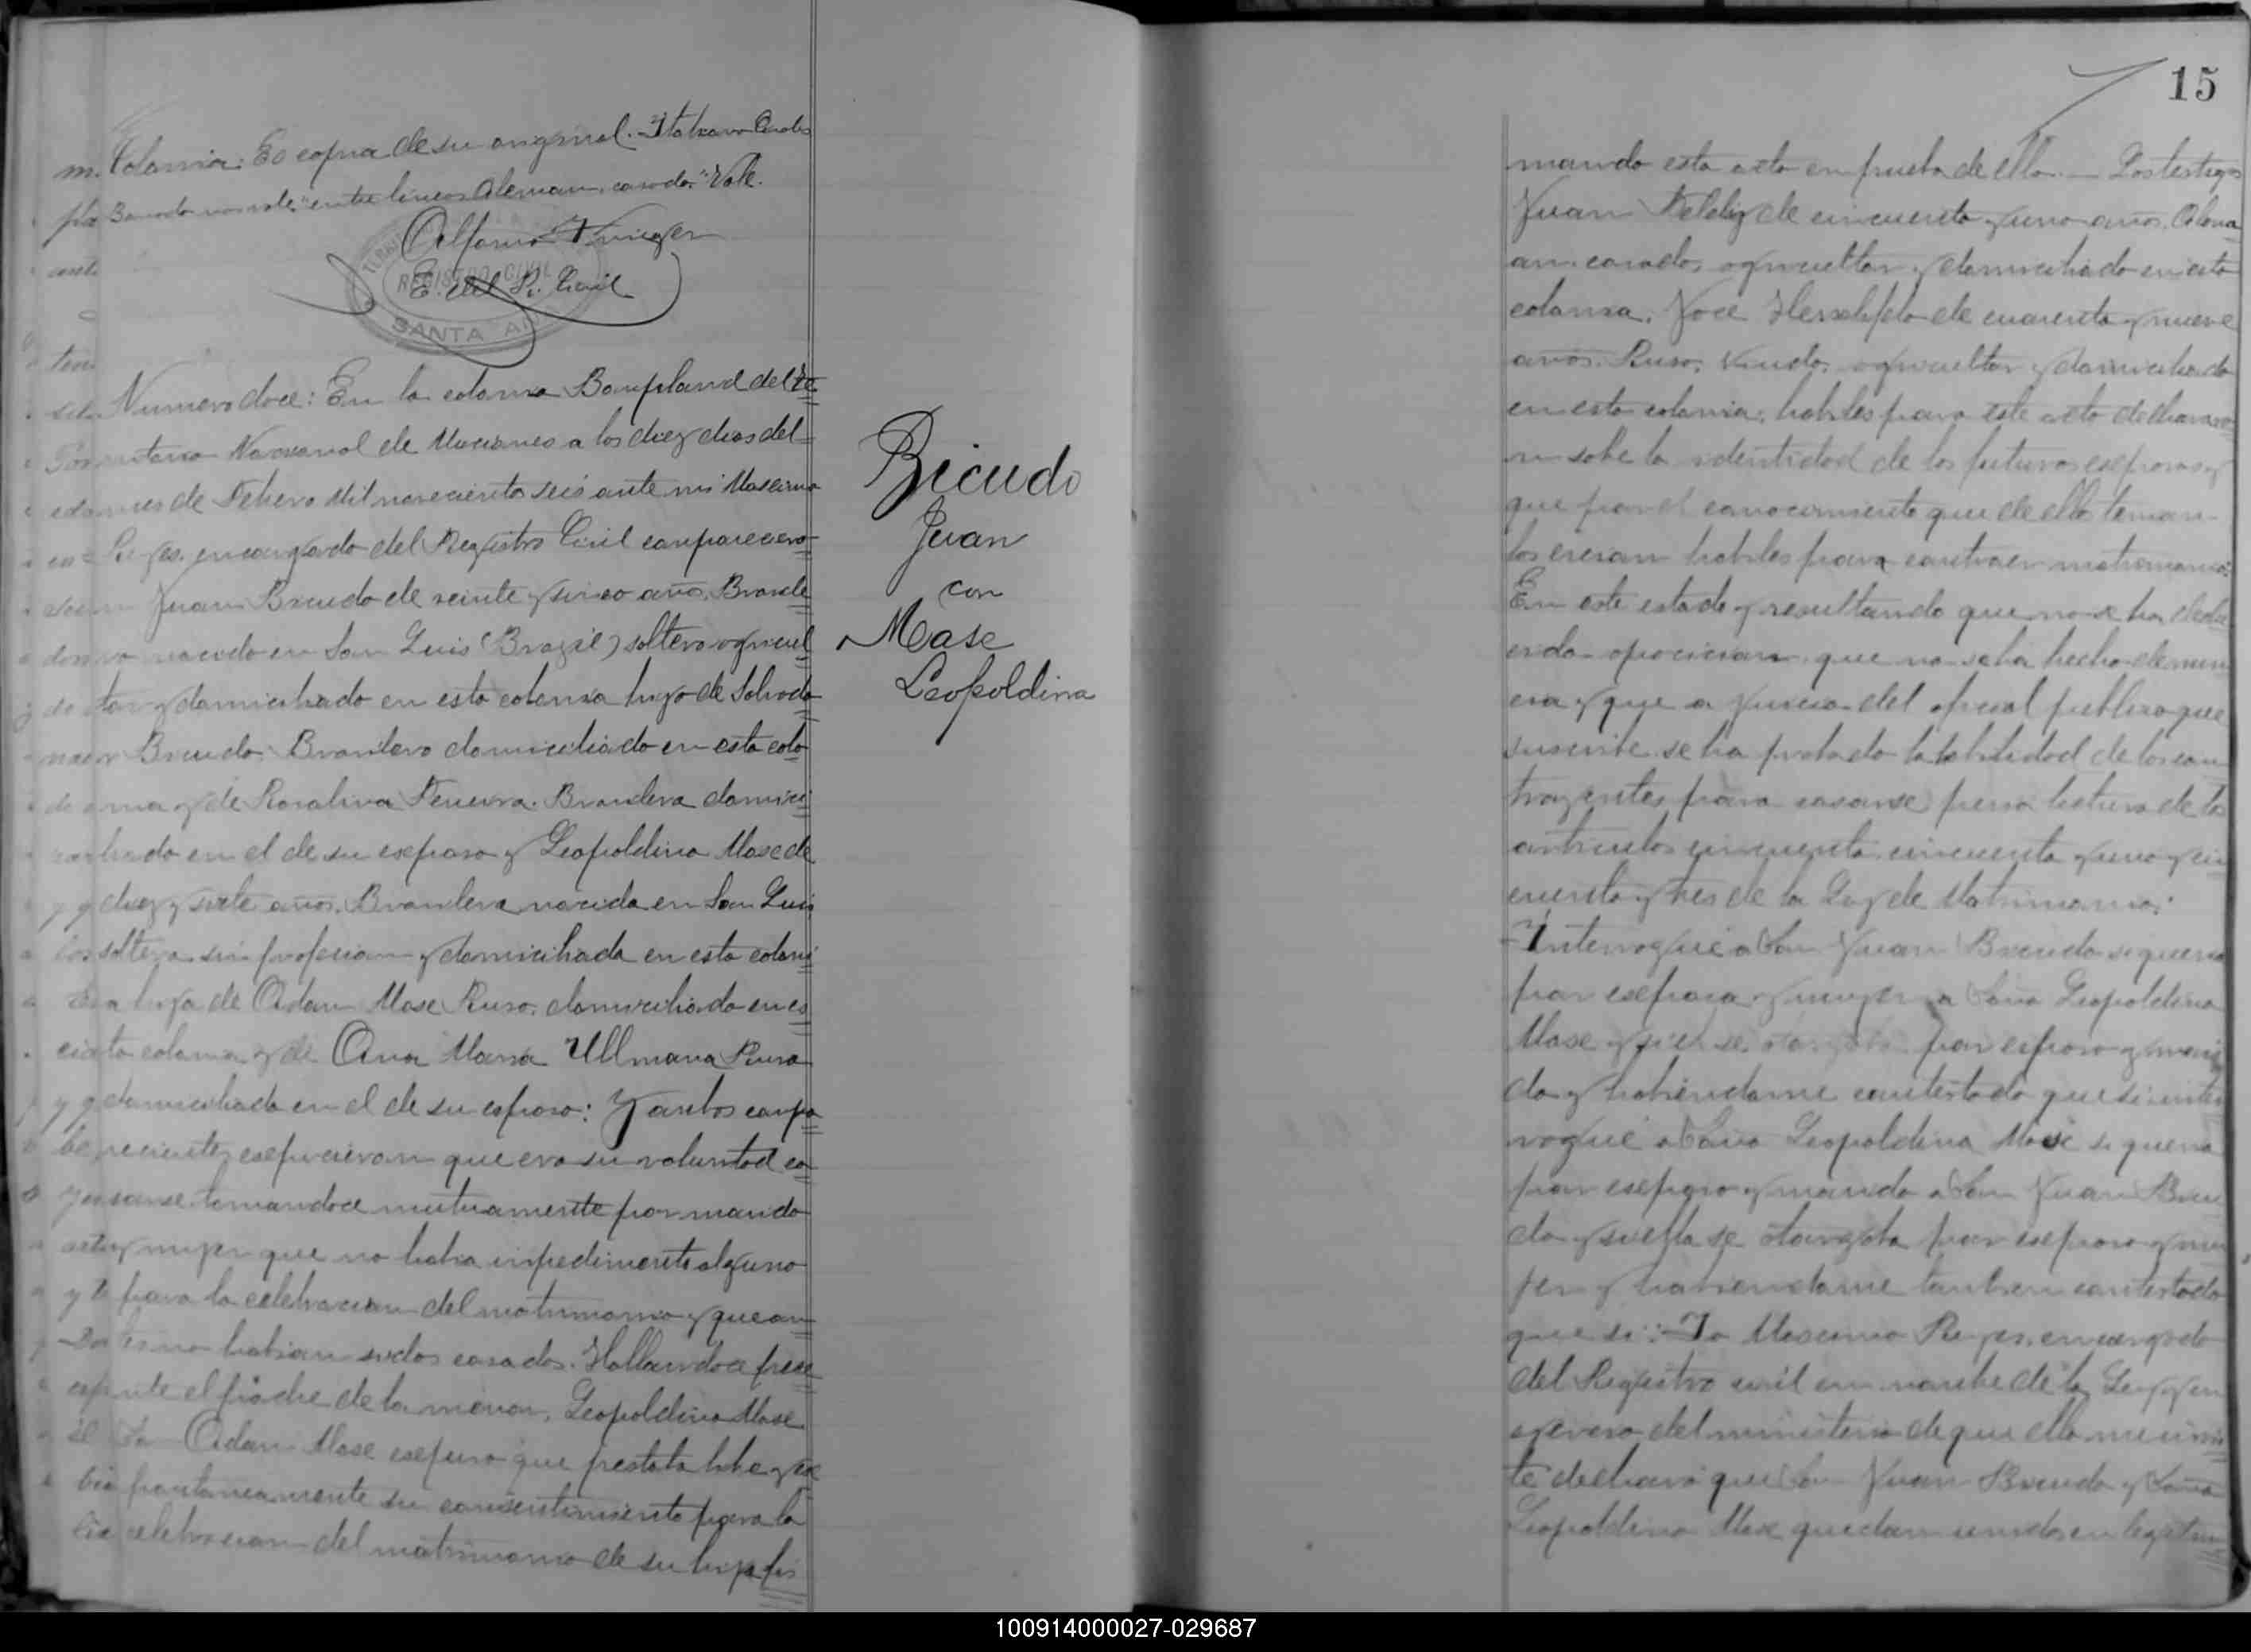 Colonia: Es copia de su original.
"entre lineas Aleman, casado." Vale.
Alfonso
E. del R. Civil
REGISTRO CIVIL
SANTA ANA
Numero doce: En la colonia Bompland del Te
rritorio Nacional de Misiones a los diez dias del
mes de Febero Mil novecientos seis ante mi Maximo
Reyes, encargado del Registro Civil comparecieron
Juan Bicudo de veinte y sinco años, Brasile
ro nacido en San Luis (Brazil) soltero agricul
tor y domiciliado en esta colonia hijo de Salvado
r Bicudo, Brasilero domiciliado en esta colo
nia y de Rosalina Ferreira. Brasilera domici
liada en el de su esposo y Leopoldina Mase de
diez y siete años, Brasilera nacida en San Luis
soltera sin profesion y domiciliada en esta coloni
a hija de Adam Mase Ruso, domiciliado en es
ta colonia y de Ana Maria Ullmana Rusa
domiciliada en el de su esposo: Y ambos compa
recientes espusieron que era su voluntad ca
sarse tomandose mutuamente por marido
y mujer que no habia inpedimento alguno
para la celebracion del matrimonio y que an
tes no habian sidos casados. Hallandose prese
nte el padre de la menor, Leopoldina Mase
Don Adam Mase espuso que prestaba libre y es
pontaneamente su consentimiento para la
celebracion del matrimonio de su hija fir
Bicudo
Juan
con
Mase
Leopoldina
15
mando esta acta en prueba de ello. — Los testigos
Juan de cincuenta y uno años, Alema
an casado, agricultor y domiciliado en esta
colonia. Jose de cuarenta y nueve
años. Ruso, viudo, agricultor y domiciliado
en esta colonia, habiles para este acto declararo
n sobre la identidad de los futuros esposos y
que por el conocimiento que de ellos tenian
los creian habiles para contraer matrimonio:
En este estado y resultando que no se ha dedu
cido oposicion, que no se ha hecho denun
cia y que a juicio del oficial publico que
suscribe se ha probado la habilidad de los con
trayentes para casarse previa lectura de los
articulos cincuenta, cincuenta y uno y cin
cuenta y tres de la Ley de Matrimonio:
Interrogué a Don Juan Bicudo si queria
por esposa y mujer a Doña Leopoldina
Mase y si el se otorgaba por esposo y mari
do y habiendome contestado que si inter
rogué a Doña Leopoldina Mase si queria
por esposo y marido a Don Juan Bicu
do y si ella se otorgaba por esposa y mu
jer y habiendome tanbien contestado
que si: Yo Maximo Reyes, encargado
del Registro civil en nombre de la Ley y en
ejercicio del ministerio de que ella me invis
te declaro que Don Juan Bicudo y Doña
Leopoldina Mase quedan unidos en legitim
100914000027-029687